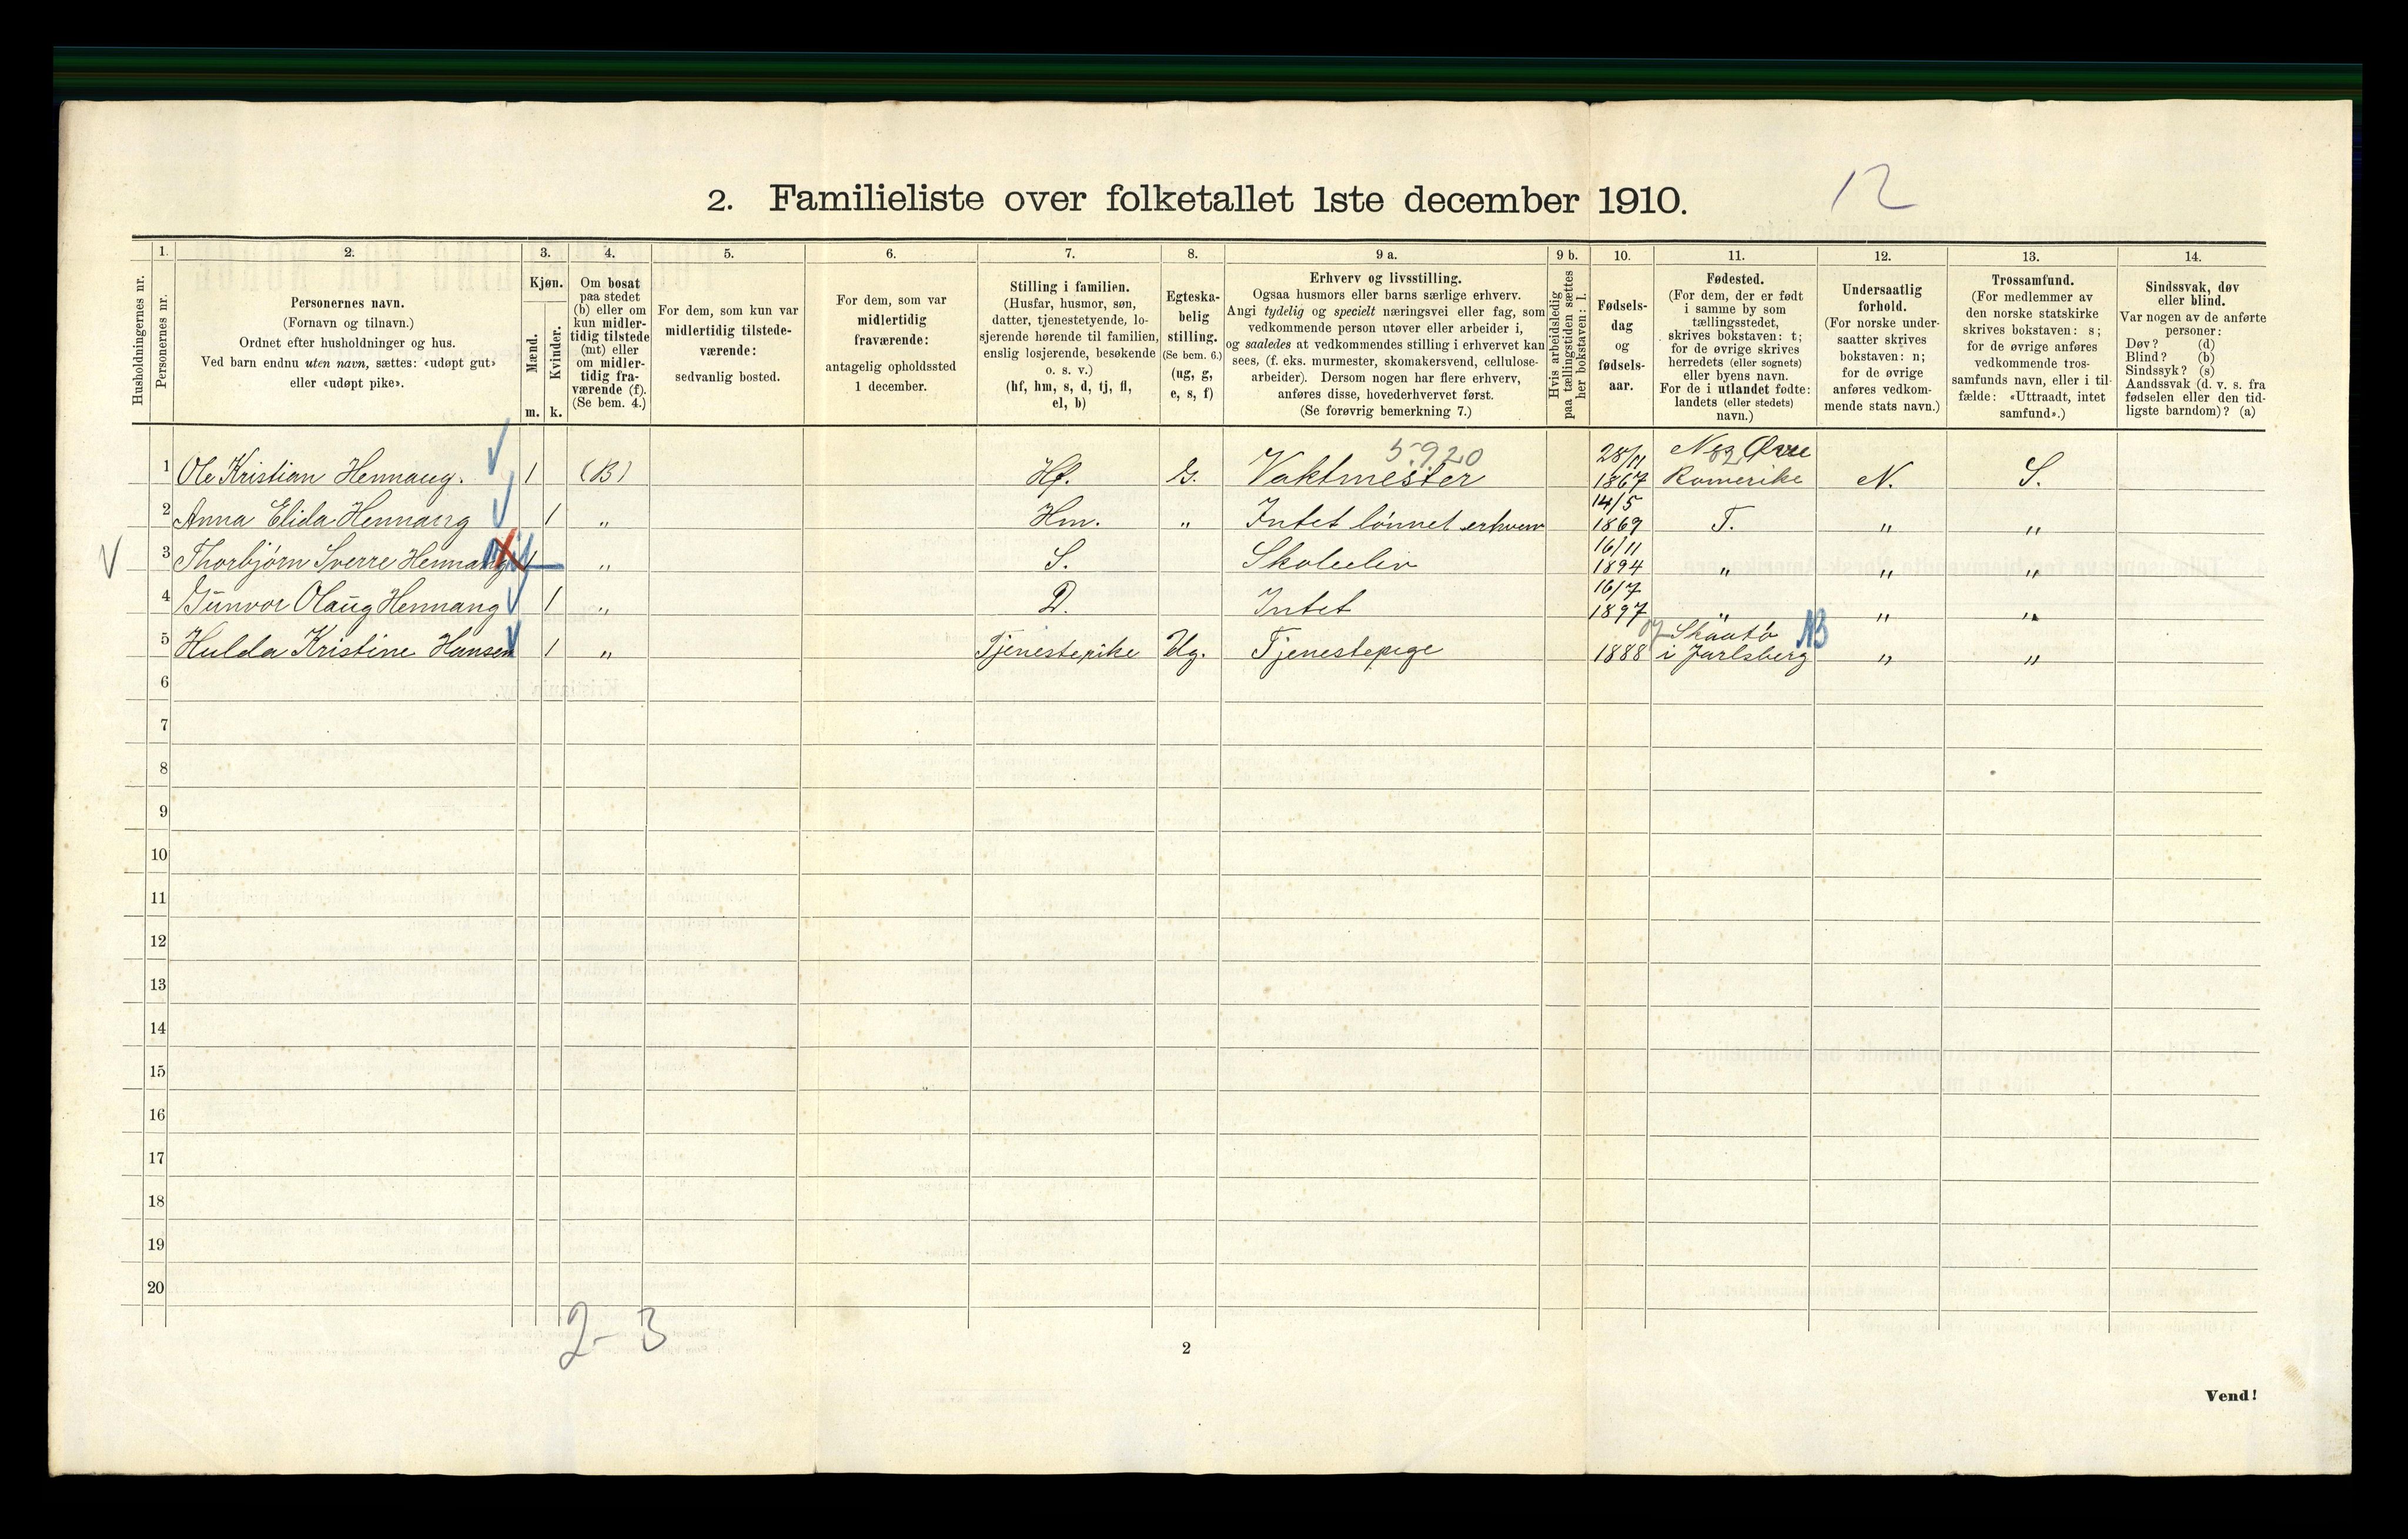 12
2. Familieliste over folketallet 1ste december 1910.
Husholdningernes nr.
1.
Personernes nr.
2.
Personernes navn.
(Fornavn og tilnavn.)
Ordnet efter husholdninger og hus.
Ved barn endnu uten navn, sættes: «udøpt gut»
eller «udøpt pike».
3.
Kjøn.
Mænd.
Kvinder.
m. k.
4.
Om bosat
paa stedet
(b) eller om
kun midler-
tidig tilstede
(mt) eller
om midler-
tidig fra-
værende (f).
(Se bem. 4.)
5.
For dem, som kun var
midlertidig tilstede-
værende:
sedvanlig bosted.
6.
For dem, som var
midlertidig
fraværende:
antagelig opholdssted
1 december.
7.
Stilling i familien.
(Husfar, husmor, søn,
datter, tjenestetyende, lo-
sjerende hørende til familien,
enslig losjerende, besøkende
o. s. v.)
(hf, hm, s, d, tj, fl,
el, b)
8.
Egteska-
belig
stilling.
(Se bem. 6.)
(ug, g,
e, s, f)
9 a.
Erhverv og livsstilling.
Ogsaa husmors eller barns særlige erhverv.
Angi tydelig og specielt næringsvei eller fag, som
vedkommende person utøver eller arbeider i,
og saaledes at vedkommendes stilling i erhvervet kan
sees, (f. eks. murmester, skomakersvend, cellulose-
arbeider). Dersom nogen har flere erhverv,
anføres disse, hovederhvervet først.
(Se forøvrig bemerkning 7.)
9 b.
Hvis arbeidsledig
paa tællingstiden sættes
her bokstaven: l.
10.
Fødsels-
dag
og
fødsels-
aar.
11.
Fødested.
(For dem, der er født
i samme by som
tællingsstedet,
skrives bokstaven: t;
for de øvrige skrives
herredets (eller sognets)
eller byens navn.
For de i utlandet fødte:
landets (eller stedets)
navn.)
12.
Undersaatlig
forhold.
(For norske under-
saatter skrives
bokstaven: n;
for de øvrige
anføres vedkom-
mende stats navn.)
13.
Trossamfund.
(For medlemmer av
den norske statskirke
skrives bokstaven: s;
for de øvrige anføres
vedkommende tros-
samfunds navn, eller i til-
fælde: «Uttraadt, intet
samfund».)
14.
Sindssvak, døv
eller blind.
Var nogen av de anførte
personer:
Døv? (d)
Blind? (b)
Sindssyk? (s)
Aandssvak (d. v. s. fra
fødselen eller den tid-
ligste barndom)? (a)
1 Ole Kristian Hennaug. 1 (B) Hf. G. Vaktmester 5.920 28/11 1867 Nes Øvre Romerike N. S.
2 Anna Elida Hennaug 1 " Hm. " Intet lønnet erhverv 14/5 1869 T. " "
3 Thorbjørn Sverre Hennaug 1 " S. Skoleelev 16/11 1894 " " "
4 Gunvor Olaug Hennaug 1 " D. Intet 16/7 1897 " " "
5 Hulda Kristine Hansen 1 " Tjenestepike Ug. Tjenestepige 1888 i Jarlsberg " "
6
7
8
9
10
11
12
13
14
15
16
17
18
19
20
2-3
2
Vend!